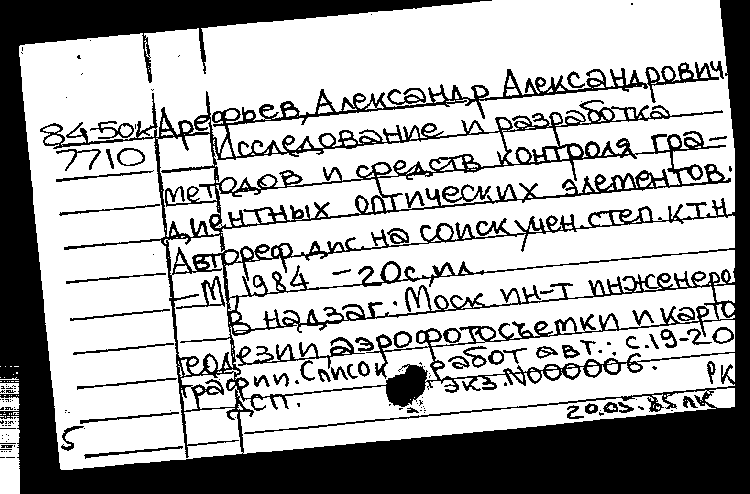 Арефьев, Александр Александрович.
84-50к
7710
Исследование и разработка
методов и средств контроля гра-
диентных оптических элементов:
Автореф. дис. на соиск учен. степ. к.т.н.
— М, 1984 – 20с, ил.
В надзаг.: Моск ин-т инженеро
геодезии, аэрофотосъемки и карто
графии. Список работ авт.: с.19-20
ДСП. экз. №00006.
РК
20.05.85 лк
5